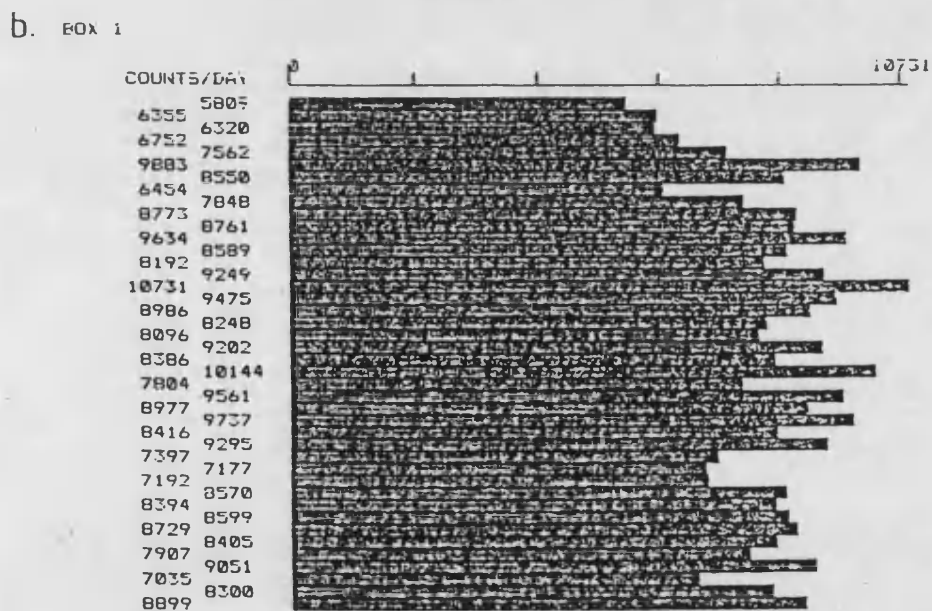 b. BOX 1
0 10731
COUNTS/DAY
5805
6355
6320
6752
7562
9883
8550
6454
7848
8773
8761
9634
8589
8192
9249
10731
9475
8986
8248
8096
9202
8386
10144
7804
9561
8977
9737
8416
9295
7397
7177
7192
8570
8394
8599
8729
8405
7907
9051
7035
8300
8899